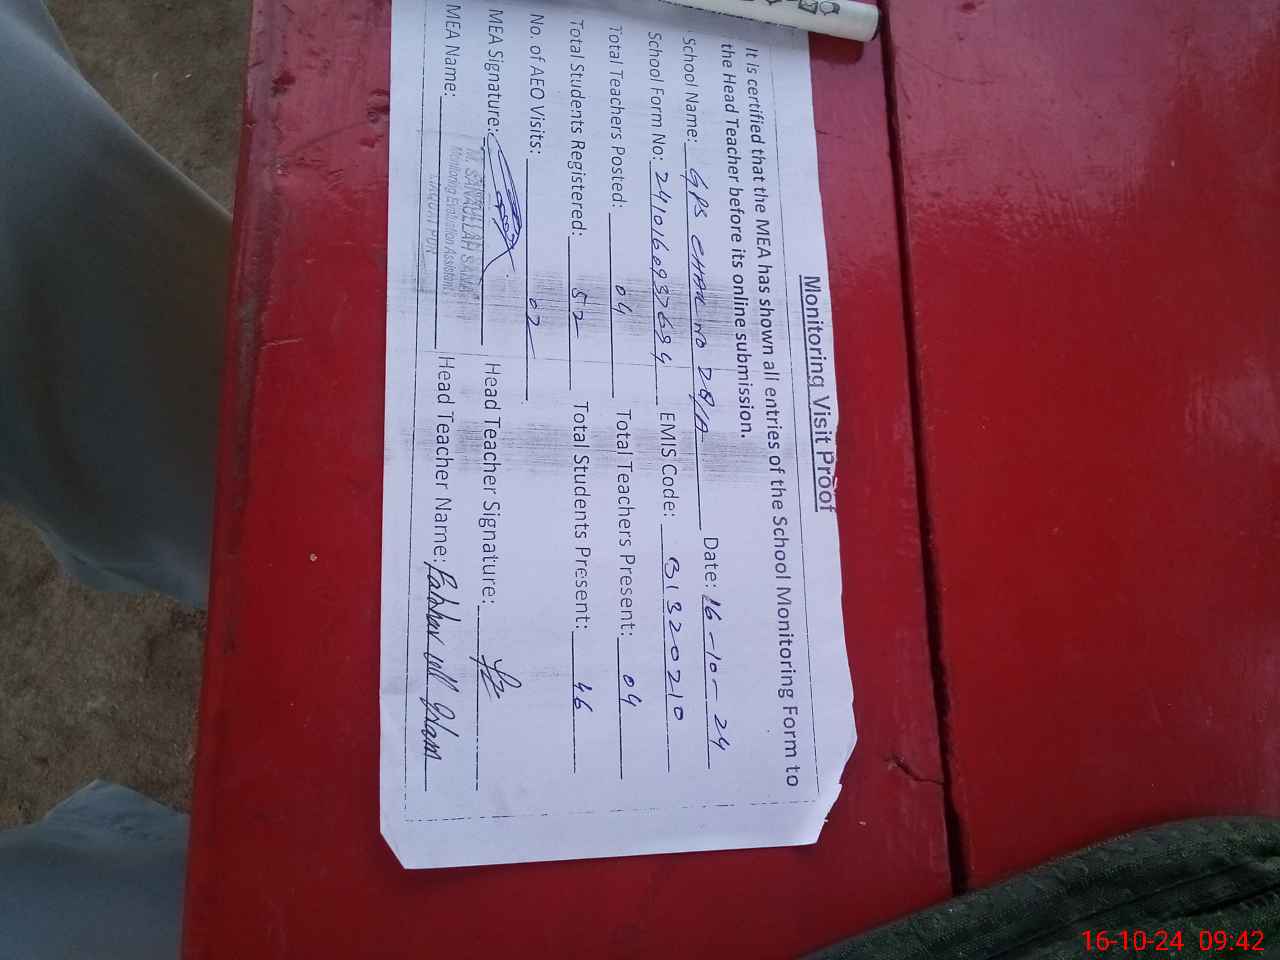 Monitoring Visit Proof
It is certified that the MEA has shown all entries of the School Monitoring Form to
the Head Teacher before its online submission.
School Name: GPS CHAK NO 29/A Date: 16-10-24
School Form No: 2410160937684 EMIS Code: 31320210
Total Teachers Posted: 04 Total Teachers Present: 04
Total Students Registered: 52 Total Students Present: 46
No. of AEO Visits: 02
MEA Signature: Head Teacher Signature:
MEA Name: Head Teacher Name: Fakhar Ull Islam
M. SANAULLAH
Monitoring Evaluation Assistant
LIAQUAT PUR
16-10-24 09:42